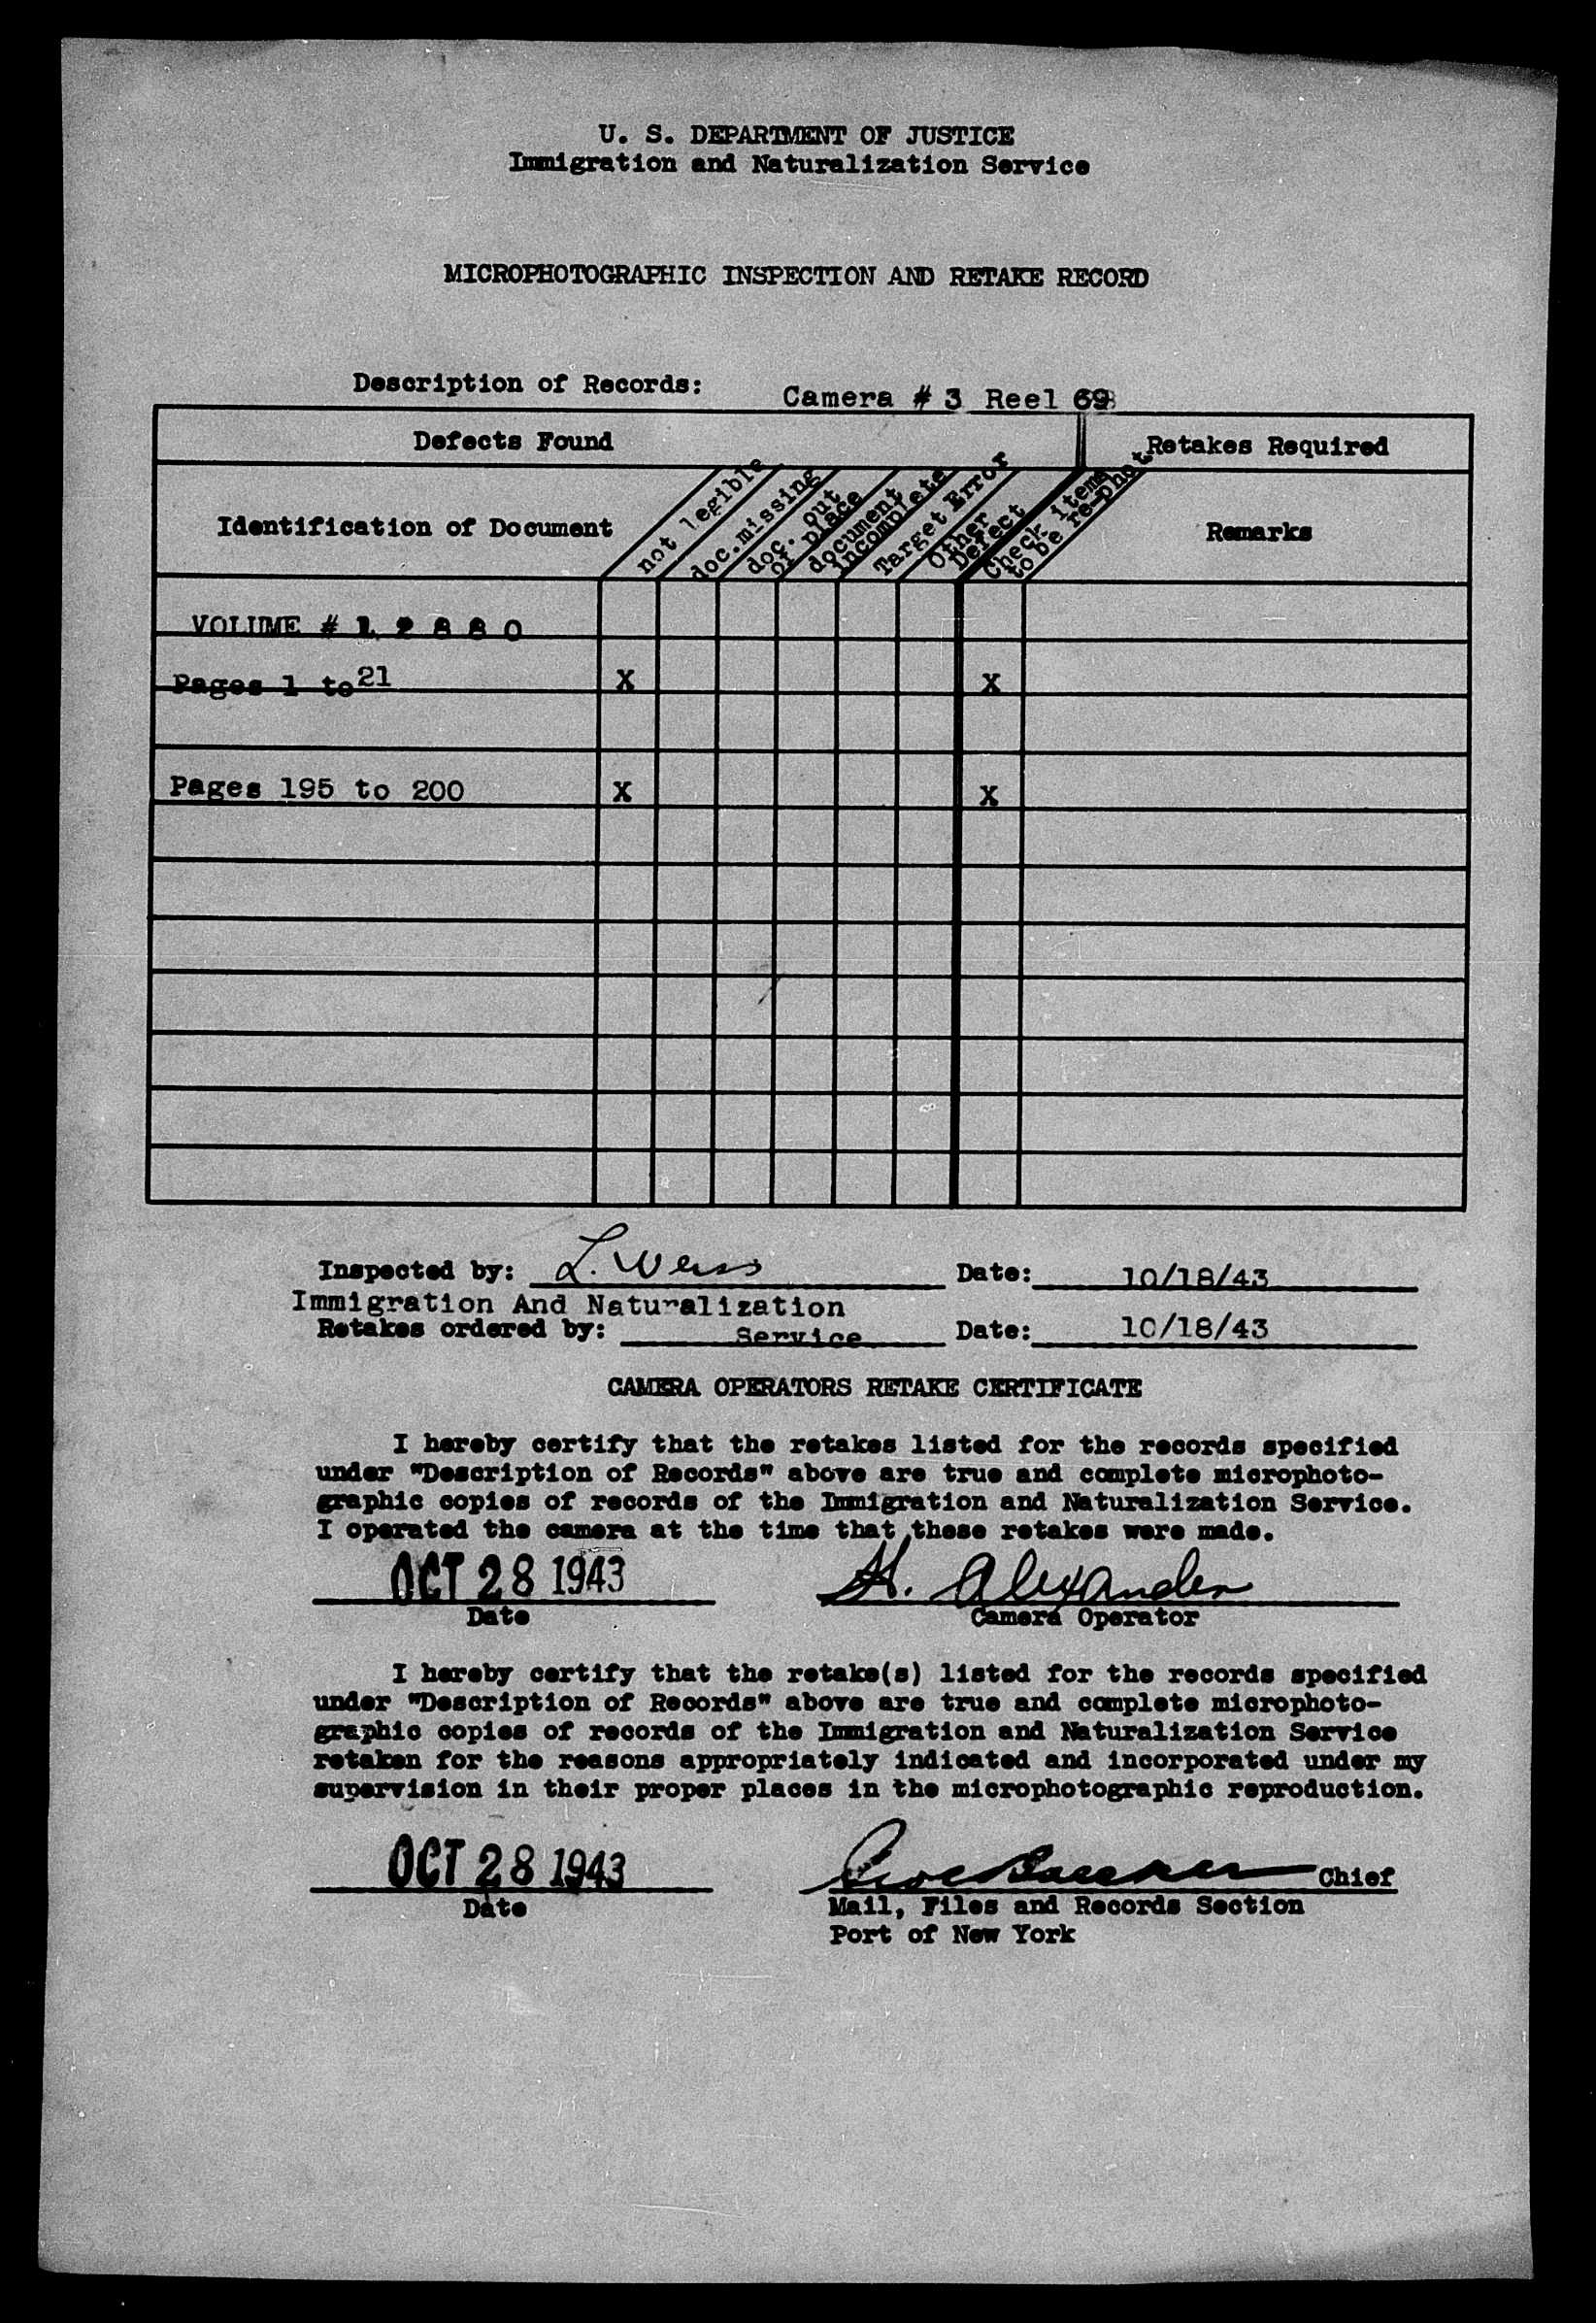 U. S. DEPARTMENT OF JUSTICE
Immigration and Naturalization Service
MICROPHOTOGRAPHIC INSPECTION AND RETAKE RECORD
Description of Records: Camera # 3 Reel
Defects Found Retakes Required
Identification of Document
not legible
doc.missing
doc. out
of place
document
incomplete
Target Error
Other
Defect
Check items
to be re-phot
Remarks
VOLUME # 1 2 8 8 0
Pages 1 to 21 X X
Pages 195 to 200 X X
Inspected by: L. Weiss Date: 10/18/43
Immigration And Naturalization
Retakes ordered by: Service Date: 10/18/43
CAMERA OPERATORS RETAKE CERTIFICATE
I hereby certify that the retakes listed for the records specified
under "Description of Records" above are true and complete microphoto-
graphic copies of records of the Immigration and Naturalization Service.
I operated the camera at the time that these retakes were made.
OCT 28 1943 H. Alexander
Date Camera Operator
I hereby certify that the retake(s) listed for the records specified
under "Description of Records" above are true and complete microphoto-
graphic copies of records of the Immigration and Naturalization Service
retaken for the reasons appropriately indicated and incorporated under my
supervision in their proper places in the microphotographic reproduction.
OCT 28 1943 Chief
Date Mail, Files and Records Section
Port of New York